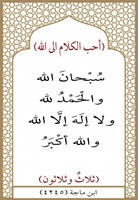 (أحب الكلام الى الله)
سُبْحَانَ الله
والْحَمْدُ لله
ولا إلَهَ إلَّا الله
والله أكْبَرُ
(ثلاثٌ وثلاثون)
ابن ماجة (٤٢٤٥)